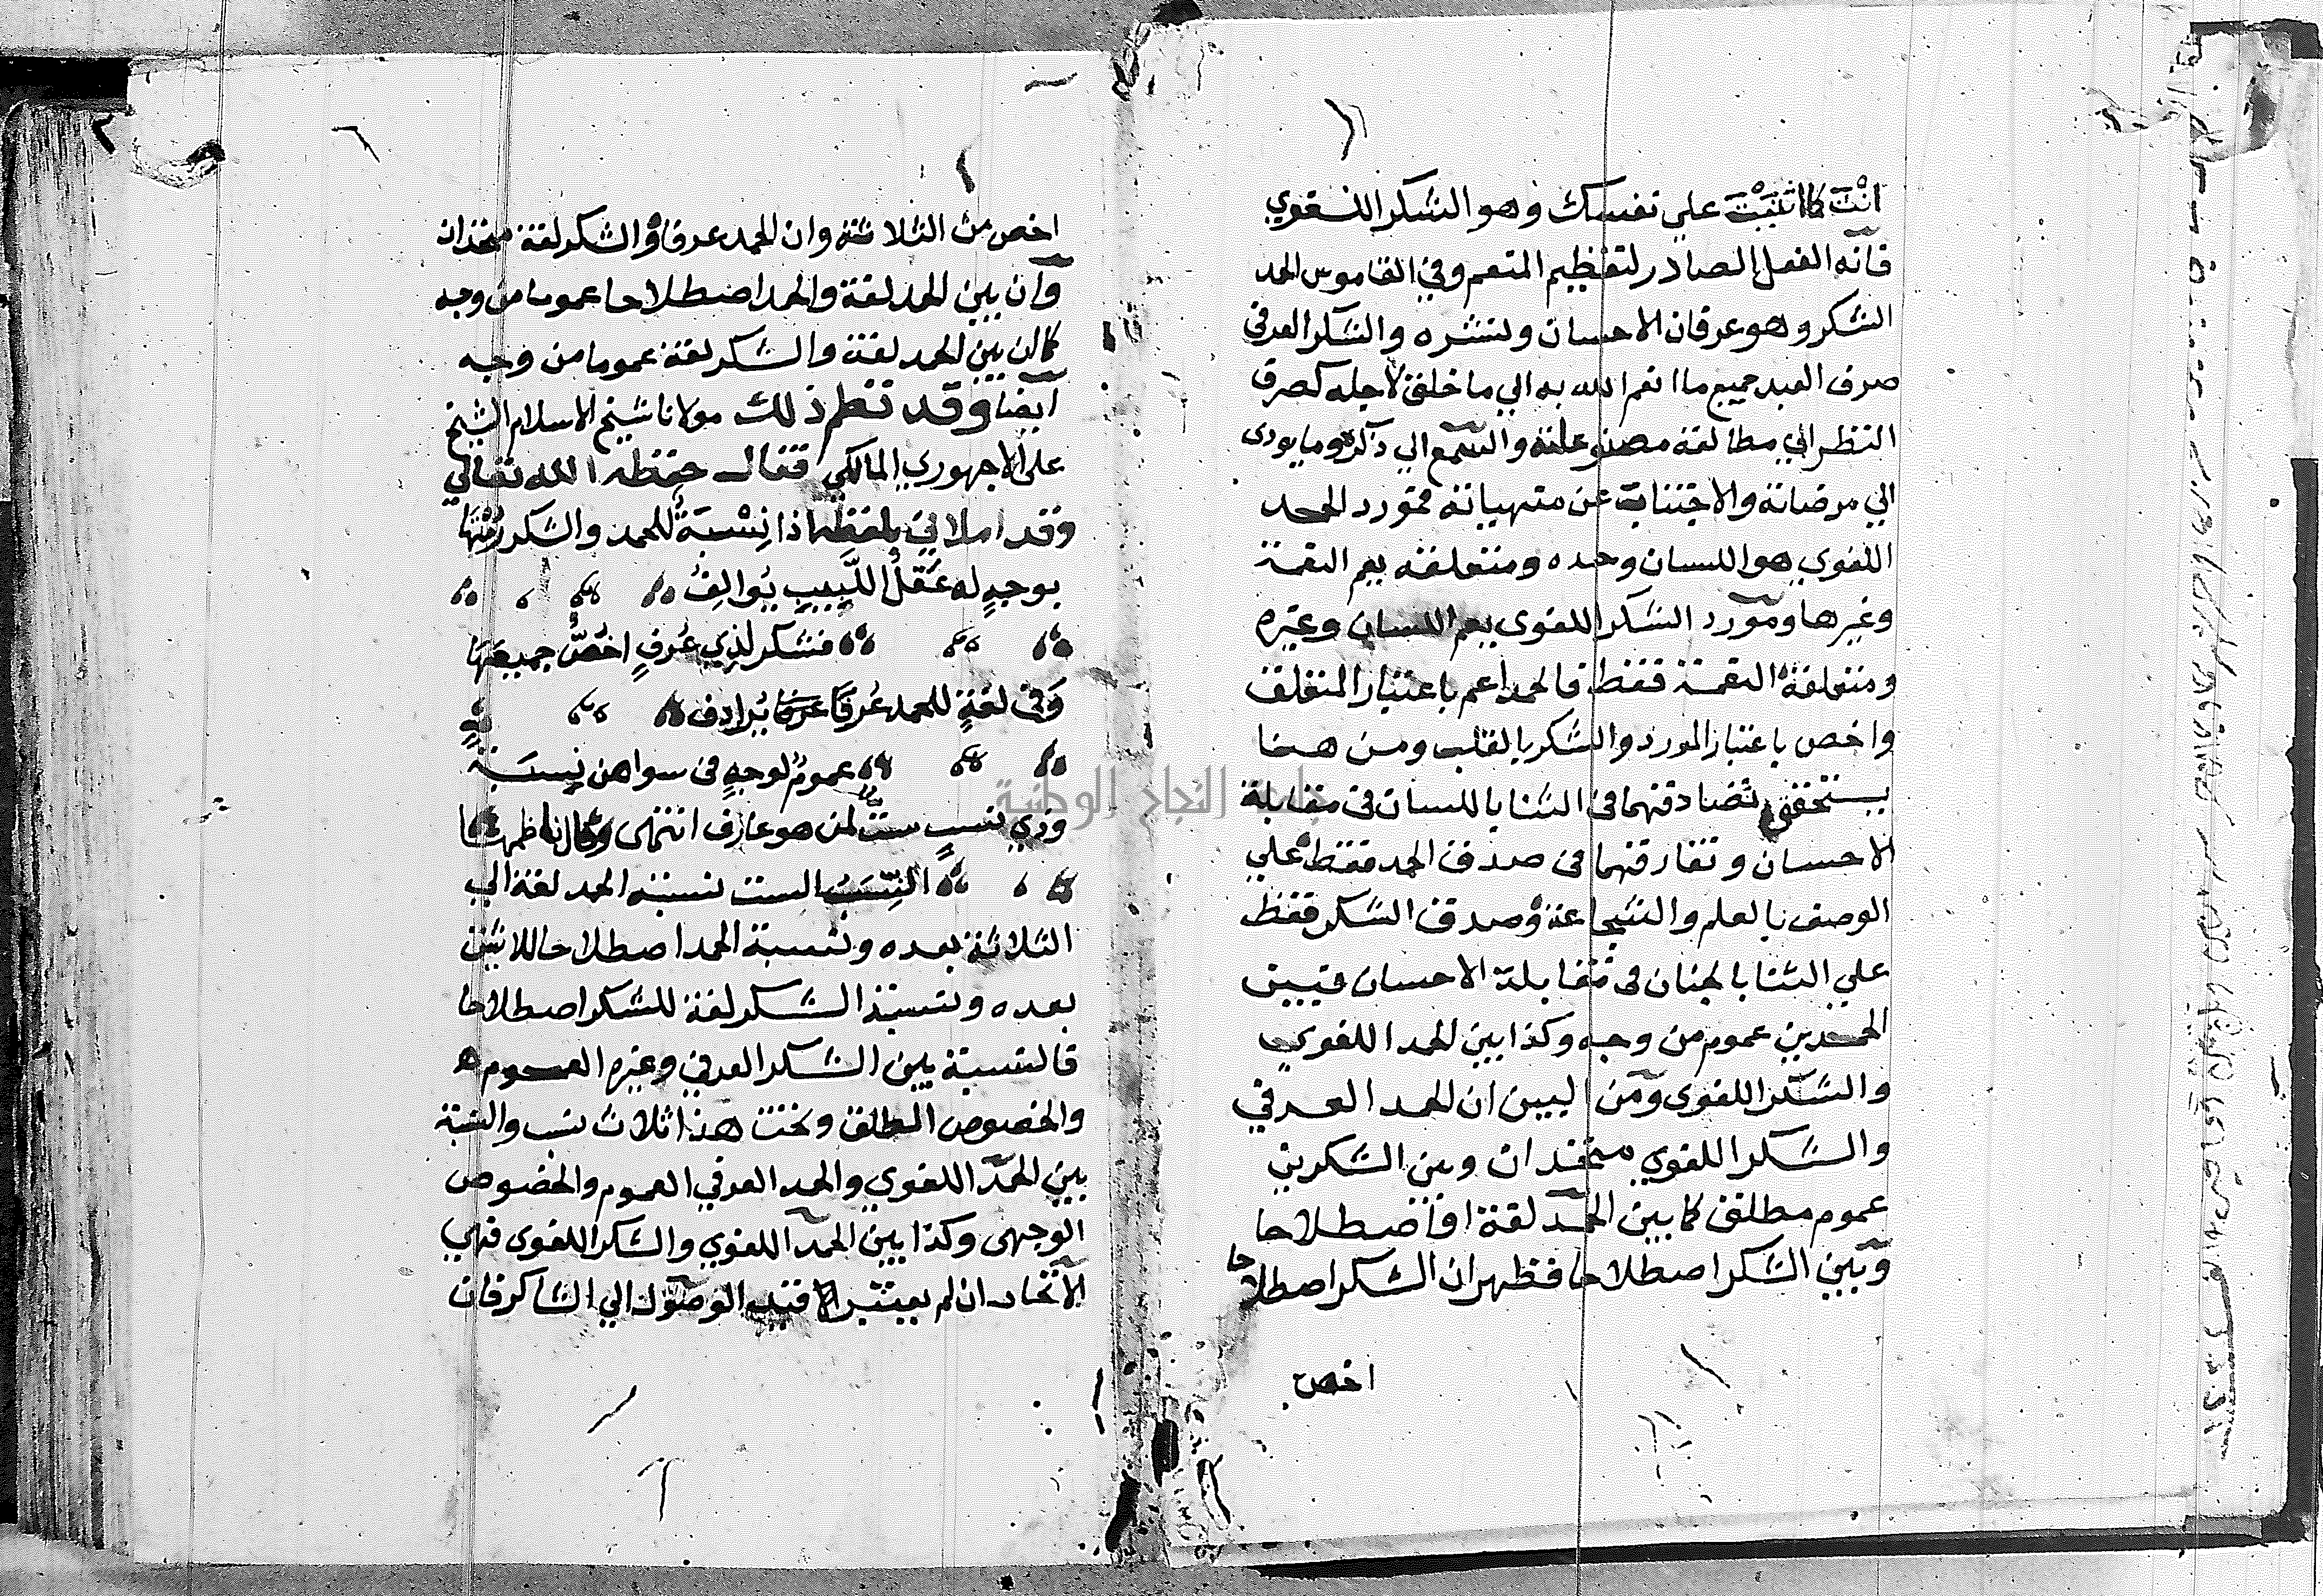 انت كما اثنيت علي نفسك وهو الشكر اللغوي
فانه الفعل الصادر لتعظيم المنعم وفي القاموس الحمد
الشكر وهو عرفان الاحسان ونشره والشكر العرفي
صرف العبد جميع ما انعم الله به الي ما خلق لاجله كصرف
النظر الي مطالعة مصنوعاته والسمع الي ذكره وما يودى
الي مرضاته والاجتناب عن منهياته فمورد الحمد
اللغوي هو اللسان وحده ومتعلقه يعم النعمة
وغيرها ومورد الشكر اللغوى يعم اللسان وغيره
ومتعلقه النعمة فقط فالحمد اعم باعتبار المتعلق
واخص باعتبار المورد والشكر بالقلب ومن هنا
يتحقق تصادقهما في الثنا باللسان في مقابلة
الاحسان وتفارقهما في صدق الحمد فقط علي
الوصف بالعلم والشجاعة وصدق الشكر فقط
علي الثنا بالجنان في مقابلة الاحسان فبين
الحمدين عموم من وجه وكذا بين الحمد اللغوي
والشكر اللغوى ومن البين ان الحمد العرفي
والشكر اللغوي متحدان وبين الشكرين
عموم مطلق كما بين الحمد لغة او اصطلاحا
وبين الشكر اصطلاحا فظهر ان الشكر اصطلاحا
اخص
اخص من الثلاثة وان الحمد عرفا والشكر لغة متحدان
وان بين الحمد لغة والحمد اصطلاحا عموما من وجه
كما ان بين الحمد لغة والشكر لغة عموما من وجه
ايضا وقد نظم ذلك مولانا شيخ الاسلام الشيخ
على الاجهوري المالكي فقال حفظه الله تعالي
وقد املاني بلفظه اذا نسبة للحمد والشكر رمتها
بوجه له عقل اللبيب يوالف
فشكر لذي عرف اخص جميعها
وفي لغة للحمد عرفا يرادف
عموم لوجه في سواهن نسبة
وذي نسب ست لمن هو عارف انتهى وقال ناظمها
النسب الست نسبة الحمد لغة الي
الثلاثة بعده ونسبة الحمد اصطلاحا للاثنين
بعده ونسبة الشكر لغة للشكر اصطلاحا
فالنسبة بين الشكر العرفي وغيره العموم
والخصوص المطلق وتحت هذا ثلاث نسب والنسبة
بين الحمد اللغوي والحمد العرفي العموم والخصوص
الوجهى وكذا بين الحمد اللغوي والشكر اللغوى فهي
الاتحاد ان لم يعتبر قيد الوصول الي الشاكر فان
جامعة النجاح الوطنية